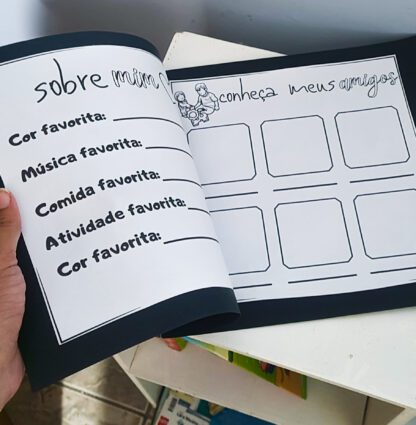 sobre mim
Cor favorita:
Música favorita:
Comida favorita:
Atividade favorita:
Cor favorita:
conheça meus amigos